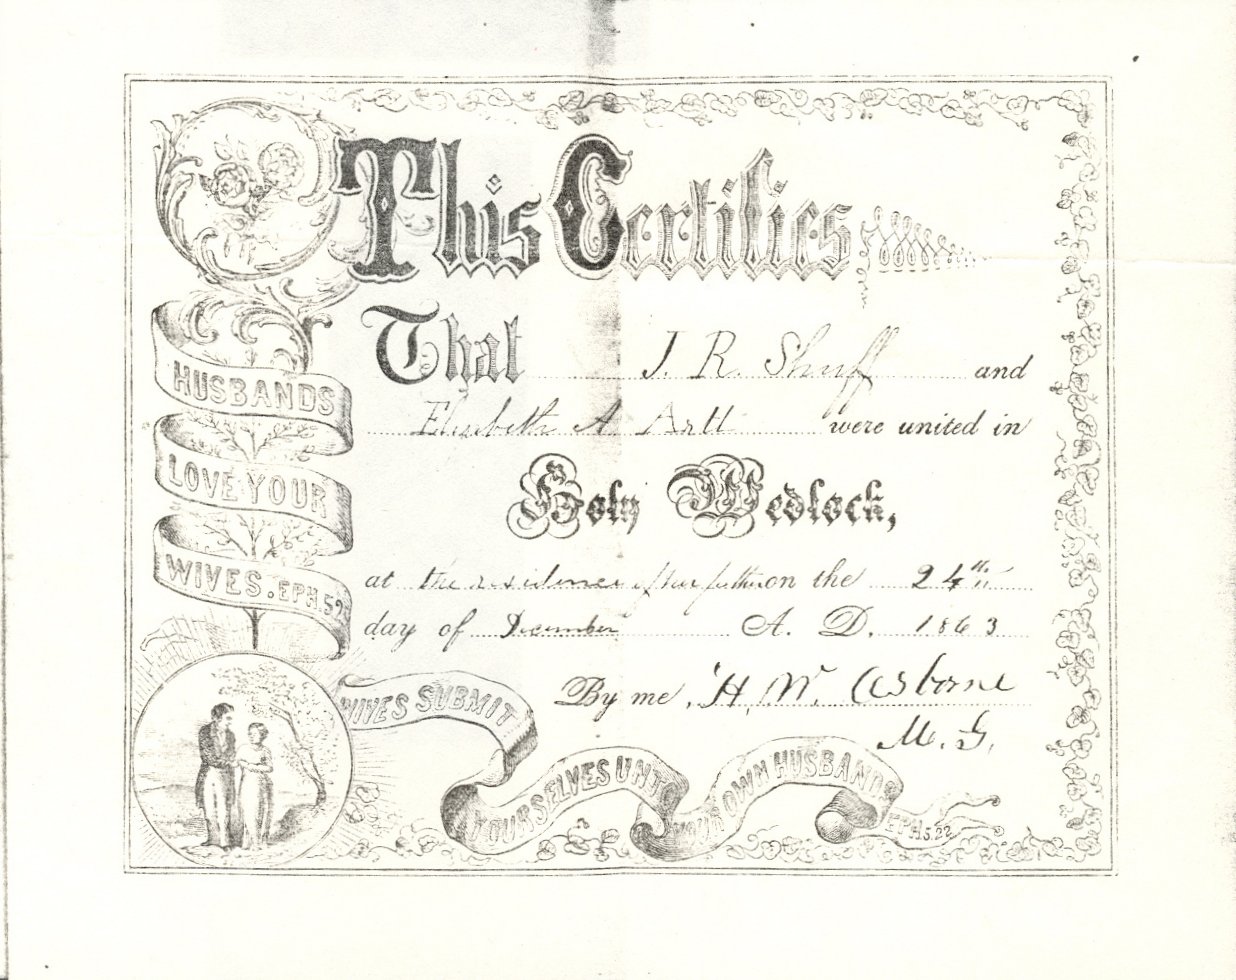 This Certifies
That J. R. Shuff and
Elisabeth A Artt were united in
Holy Wedlock,
at the residence of her father on the 24th
day of December A. D. 1863
By me, H. W. Osborne
M. G.
HUSBANDS
LOVE YOUR
WIVES. EPH. 5.
WIVES SUBMIT
YOURSELVES UNTO
YOUR OWN HUSBANDS
EPH. 5.22